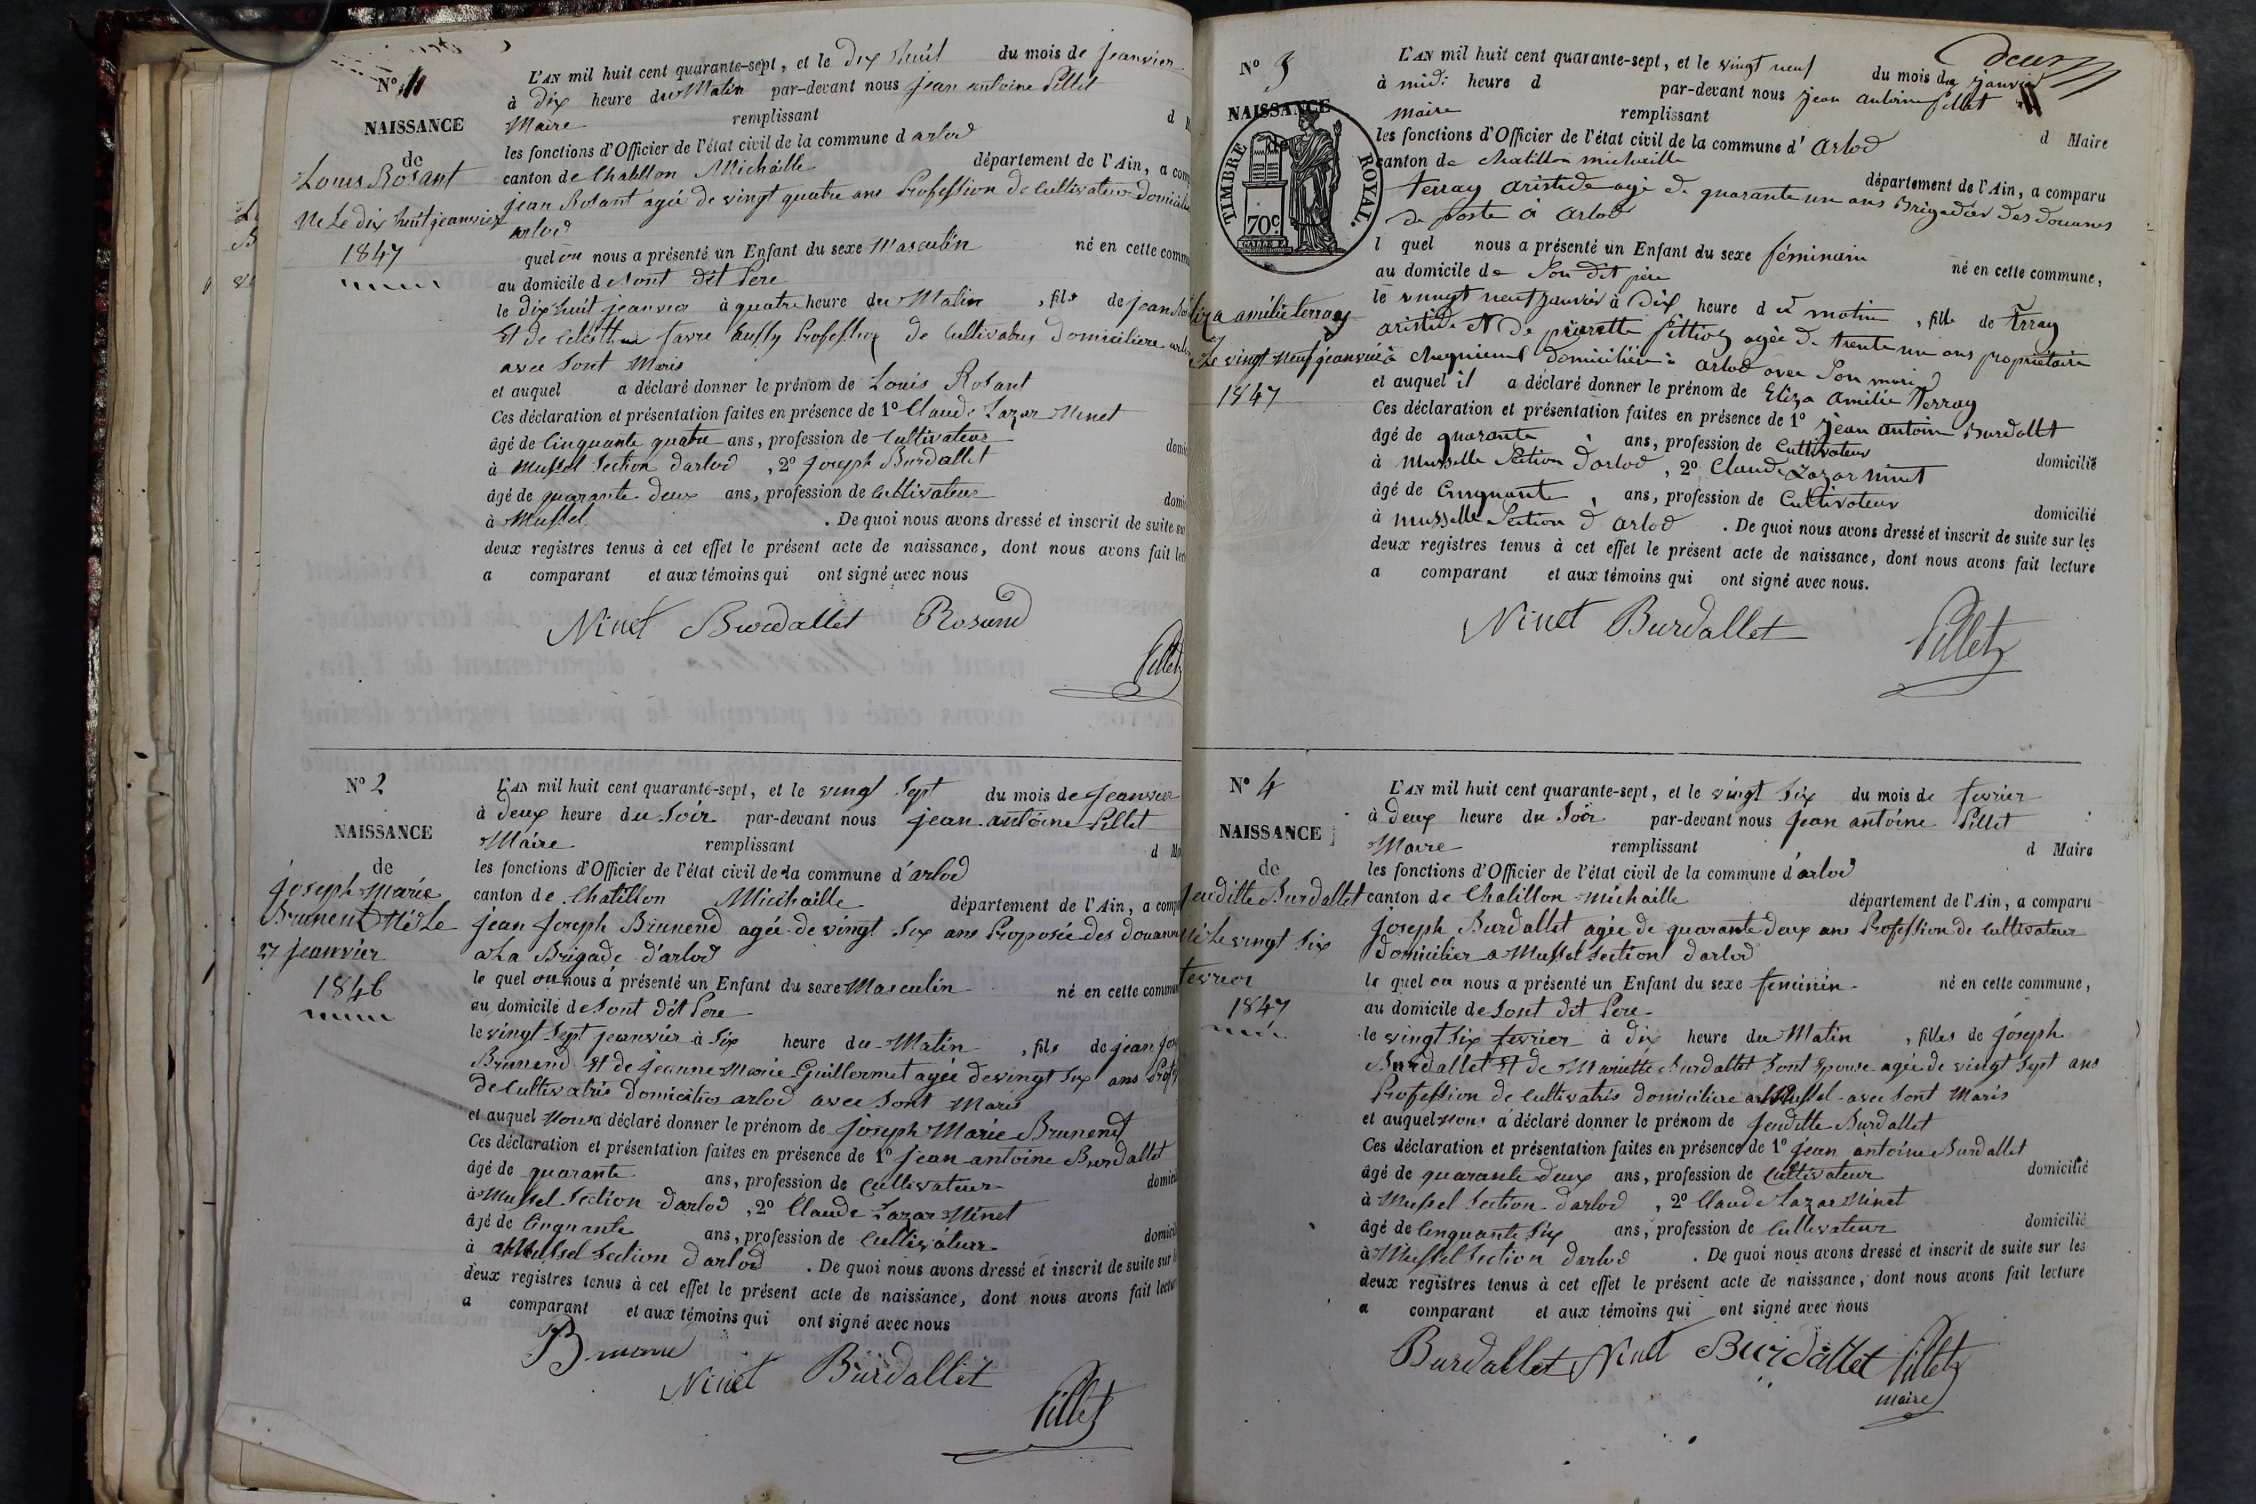 N° 1
NAISSANCE
de
Louis Rosant
Né Le dix huit jeanvier
1847
L'AN mil huit cent quarante-sept, et le dix huit du mois de jeanvier
à dix heure du Matin par-devant nous jean antoine Pillet
Maire remplissant d
les fonctions d'Officier de l'état civil de la commune d arlod
canton de Chatillon Michaille département de l'Ain, a com
jean Rosant agée de vingt quatre ans Profession de Cultivateur domicilie
arlod
quel ou nous a présenté un Enfant du sexe Masculin né en cette commu
au domicile de Sont dit Pere
le dix huit jeanvier à quatre heure du Matin , fils de jean
Et de favre aussy Profession de Cultivatris domiciliere
avec Sont Maris
et auquel a déclaré donner le prénom de Louis Rosant
Ces déclaration et présentation faites en présence de 1° Claude Lazar Ninet
âgé de Cinquante quatre ans, profession de Cultivateur domici
à Mussel Section darlod , 2° joseph Burdallet
âgé de quarante deux ans, profession de Cultivateur domici
à Mussel . De quoi nous avons dressé et inscrit de suite sur
deux registres tenus à cet effet le présent acte de naissance, dont nous avons fait lec
a comparant et aux témoins qui ont signé avec nous
Ninet Burdallet Rosand
Pillet
N° 2
NAISSANCE
de
joseph Marie
Brunend Né Le
27 jeanvier
1846
L'AN mil huit cent quarante-sept, et le vingt Sept du mois de jeanvier
à deux heure du Soir par-devant nous jean antoine Pillet
Maire remplissant d Ma
les fonctions d'Officier de l'état civil de la commune d'arlod
canton de Chatillon Michaille département de l'Ain, a comp
jean joseph Brunend agée de vingt Six ans Proposée des douann
a La Brigade d'arlod
le quel ou nous a présenté un Enfant du sexe Masculin né en cette commun
au domicile de Sont dit Pere
le vingt Sept jeanvier à Six heure du Matin , fils de jean jos
Brunend Et de jeanne Marie Guillermet agée de vingt Six ans Prof
de Cultivatris domicilier arlod avec Sont Maris
et auquel Nous a déclaré donner le prénom de joseph Marie Brunend
Ces déclaration et présentation faites en présence de 1° jean antoine Burdallet
âgé de quarante ans, profession de Cultivateur domici
à Mussel Section darlod , 2° Claude Lazar Ninet
âgé de Cinquante ans, profession de Cultivateur domici
à Mussel Section d'arlod . De quoi nous avons dressé et inscrit de suite sur
deux registres tenus à cet effet le présent acte de naissance, dont nous avons fait lectur
a comparant et aux témoins qui ont signé avec nous
Ninet Burdallet
Pillet
deux
N° 3
NAISSANCE
TIMBRE ROYAL.
70 c.
liza amélie terray
Le vingt Neuf jeanvier
1847
L'AN mil huit cent quarante-sept, et le vingt neuf du mois de janvier
à midi heure d par-devant nous jean antoine Pillet
maire remplissant d Maire
les fonctions d'Officier de l'état civil de la commune d' Arlod
canton de Chatillon michaille département de l'Ain, a comparu
terray aristide agé de quarante un ans Brigadier des douanes
de poste à Arlod
l quel nous a présenté un Enfant du sexe féminin né en cette commune,
au domicile de Son dit père
le vingt neuf janvier à Dix heure d u matin , fille de terray
aristide et De pierrette agée de trente un ans propriétaire
à domiciliée à arlod avec Son mari
et auquel il a déclaré donner le prénom de Eliza Amélie Terray
Ces déclaration et présentation faites en présence de 1° jean antoine Burdallet
âgé de quarante ans, profession de Cultivateur domicilié
à Musselle Section d'arlod , 2° Claude Lazar ninet
âgé de Cinquante , ans, profession de Cultivateur domicilié
à musselle Section d arlod . De quoi nous avons dressé et inscrit de suite sur les
deux registres tenus à cet effet le présent acte de naissance, dont nous avons fait lecture
a comparant et aux témoins qui ont signé avec nous.
Ninet Burdallet Pillet
N° 4
NAISSANCE
de
Jeuditte Burdallet
Né Le vingt Six
fevrier
1847
L'AN mil huit cent quarante-sept, et le vingt Six du mois de fevrier
à deux heure du Soir par-devant nous jean antoine Pillet
Maire remplissant d Maire
les fonctions d'Officier de l'état civil de la commune d'arlod
canton de Chatillon Michaille département de l'Ain, a comparu
joseph Burdallet agée de quarante deux ans Profession de Cultivateur
domicilier a Mussel Section darlod
le quel ou nous a présenté un Enfant du sexe feminin né en cette commune,
au domicile de Sont dit Pere
le vingt Six fevrier à dix heure du Matin , filles de joseph
Burdallet Et de Mariette Burdallet Sont Epouse agée de vingt Sept ans
Profession de Cultivatris domiciliere a Mussel avec Sont Maris
et auquel Nous a déclaré donner le prénom de Jeuditte Burdallet
Ces déclaration et présentation faites en présence de 1° jean antoine Burdallet
âgé de quarante deux ans, profession de Cultivateur domicilié
à Mussel Section darlod , 2° Claude Lazar Ninet
âgé de Cinquante Six ans, profession de Cultivateur domicilié
à Mussel Section darlod . De quoi nous avons dressé et inscrit de suite sur les
deux registres tenus à cet effet le présent acte de naissance, dont nous avons fait lecture
a comparant et aux témoins qui ont signé avec nous
Burdallet Ninet Burdallet Pillet
maire